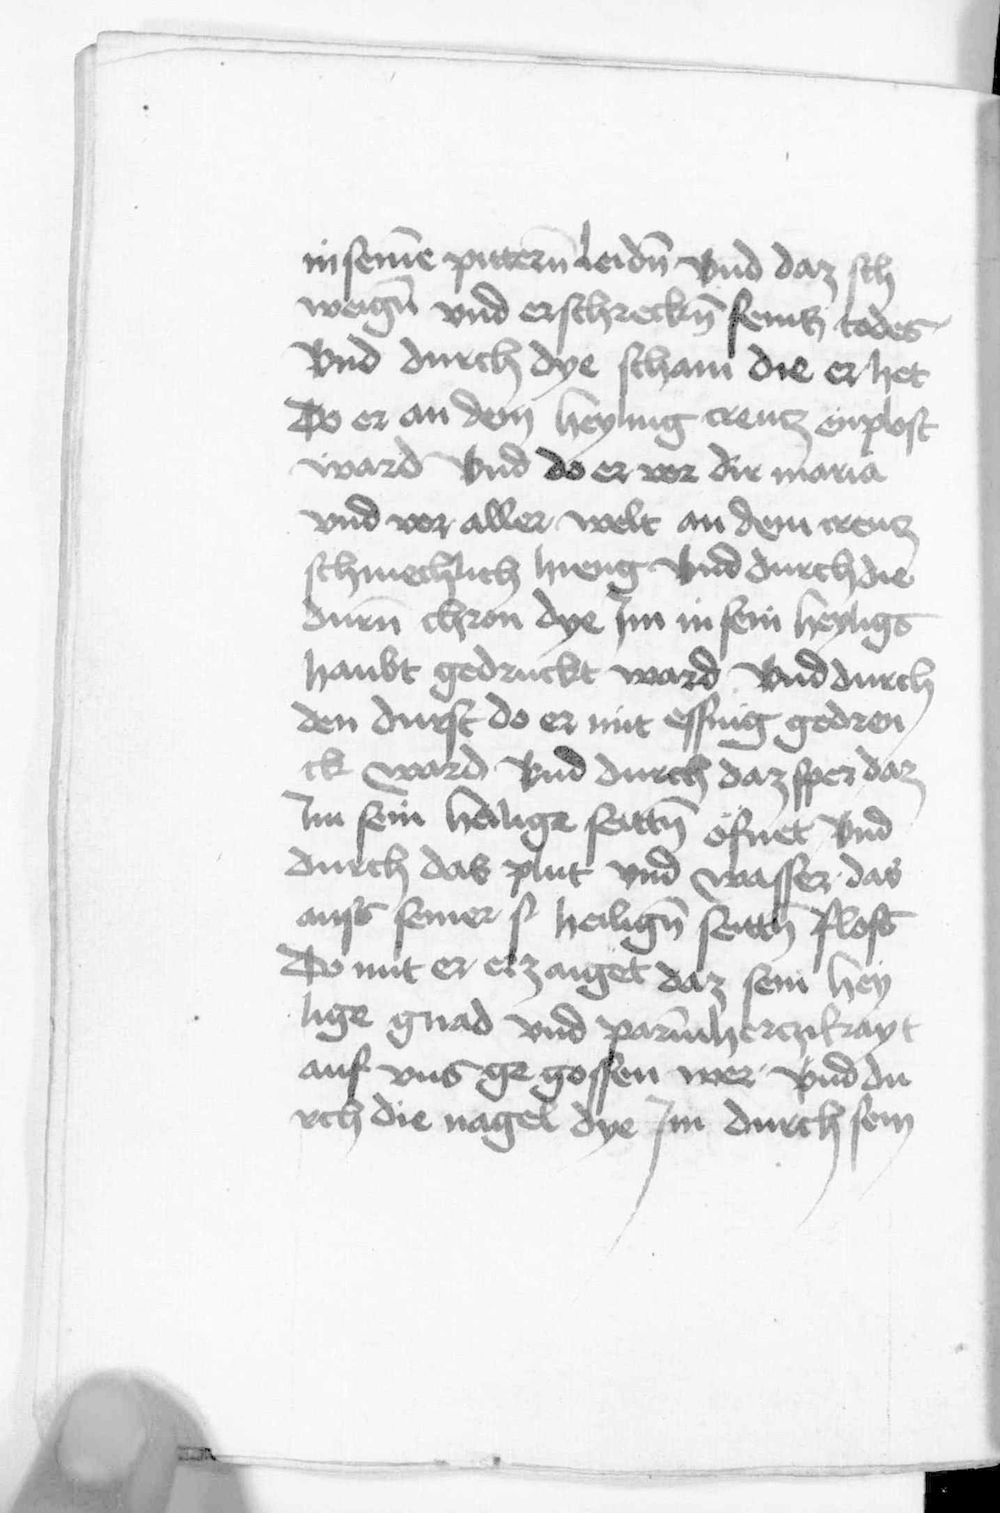 in seinē pittern̄ leidn̄ Vnd daz sch
weign̄ vnd erschreckn̄ seins todes
Vnd durch dye scham die er het
Do er an dem heyling creucz enplost
ward Vnd do er vor dir maria
vnd vor aller welt an dem creucz
schmechlich hieng Vnd durch die
durn̄ chron dye Jm in sein heyligs
haubt gedruckt ward Vnd durch
den durst do er mit essing gedren
ck ward Vnd durch daz sper daz
Jm sein heilige seittn̄ öfnet Vnd
durch das plut vnd wasser das
auss seiner s heilign̄ seittn̄ floss
Do mit er erzaiget daz sein hey
lige gnad vnd parm̄herczikayt
auf vns ge gossen wer Vnd du
rch die nagel dye Jm durch sein